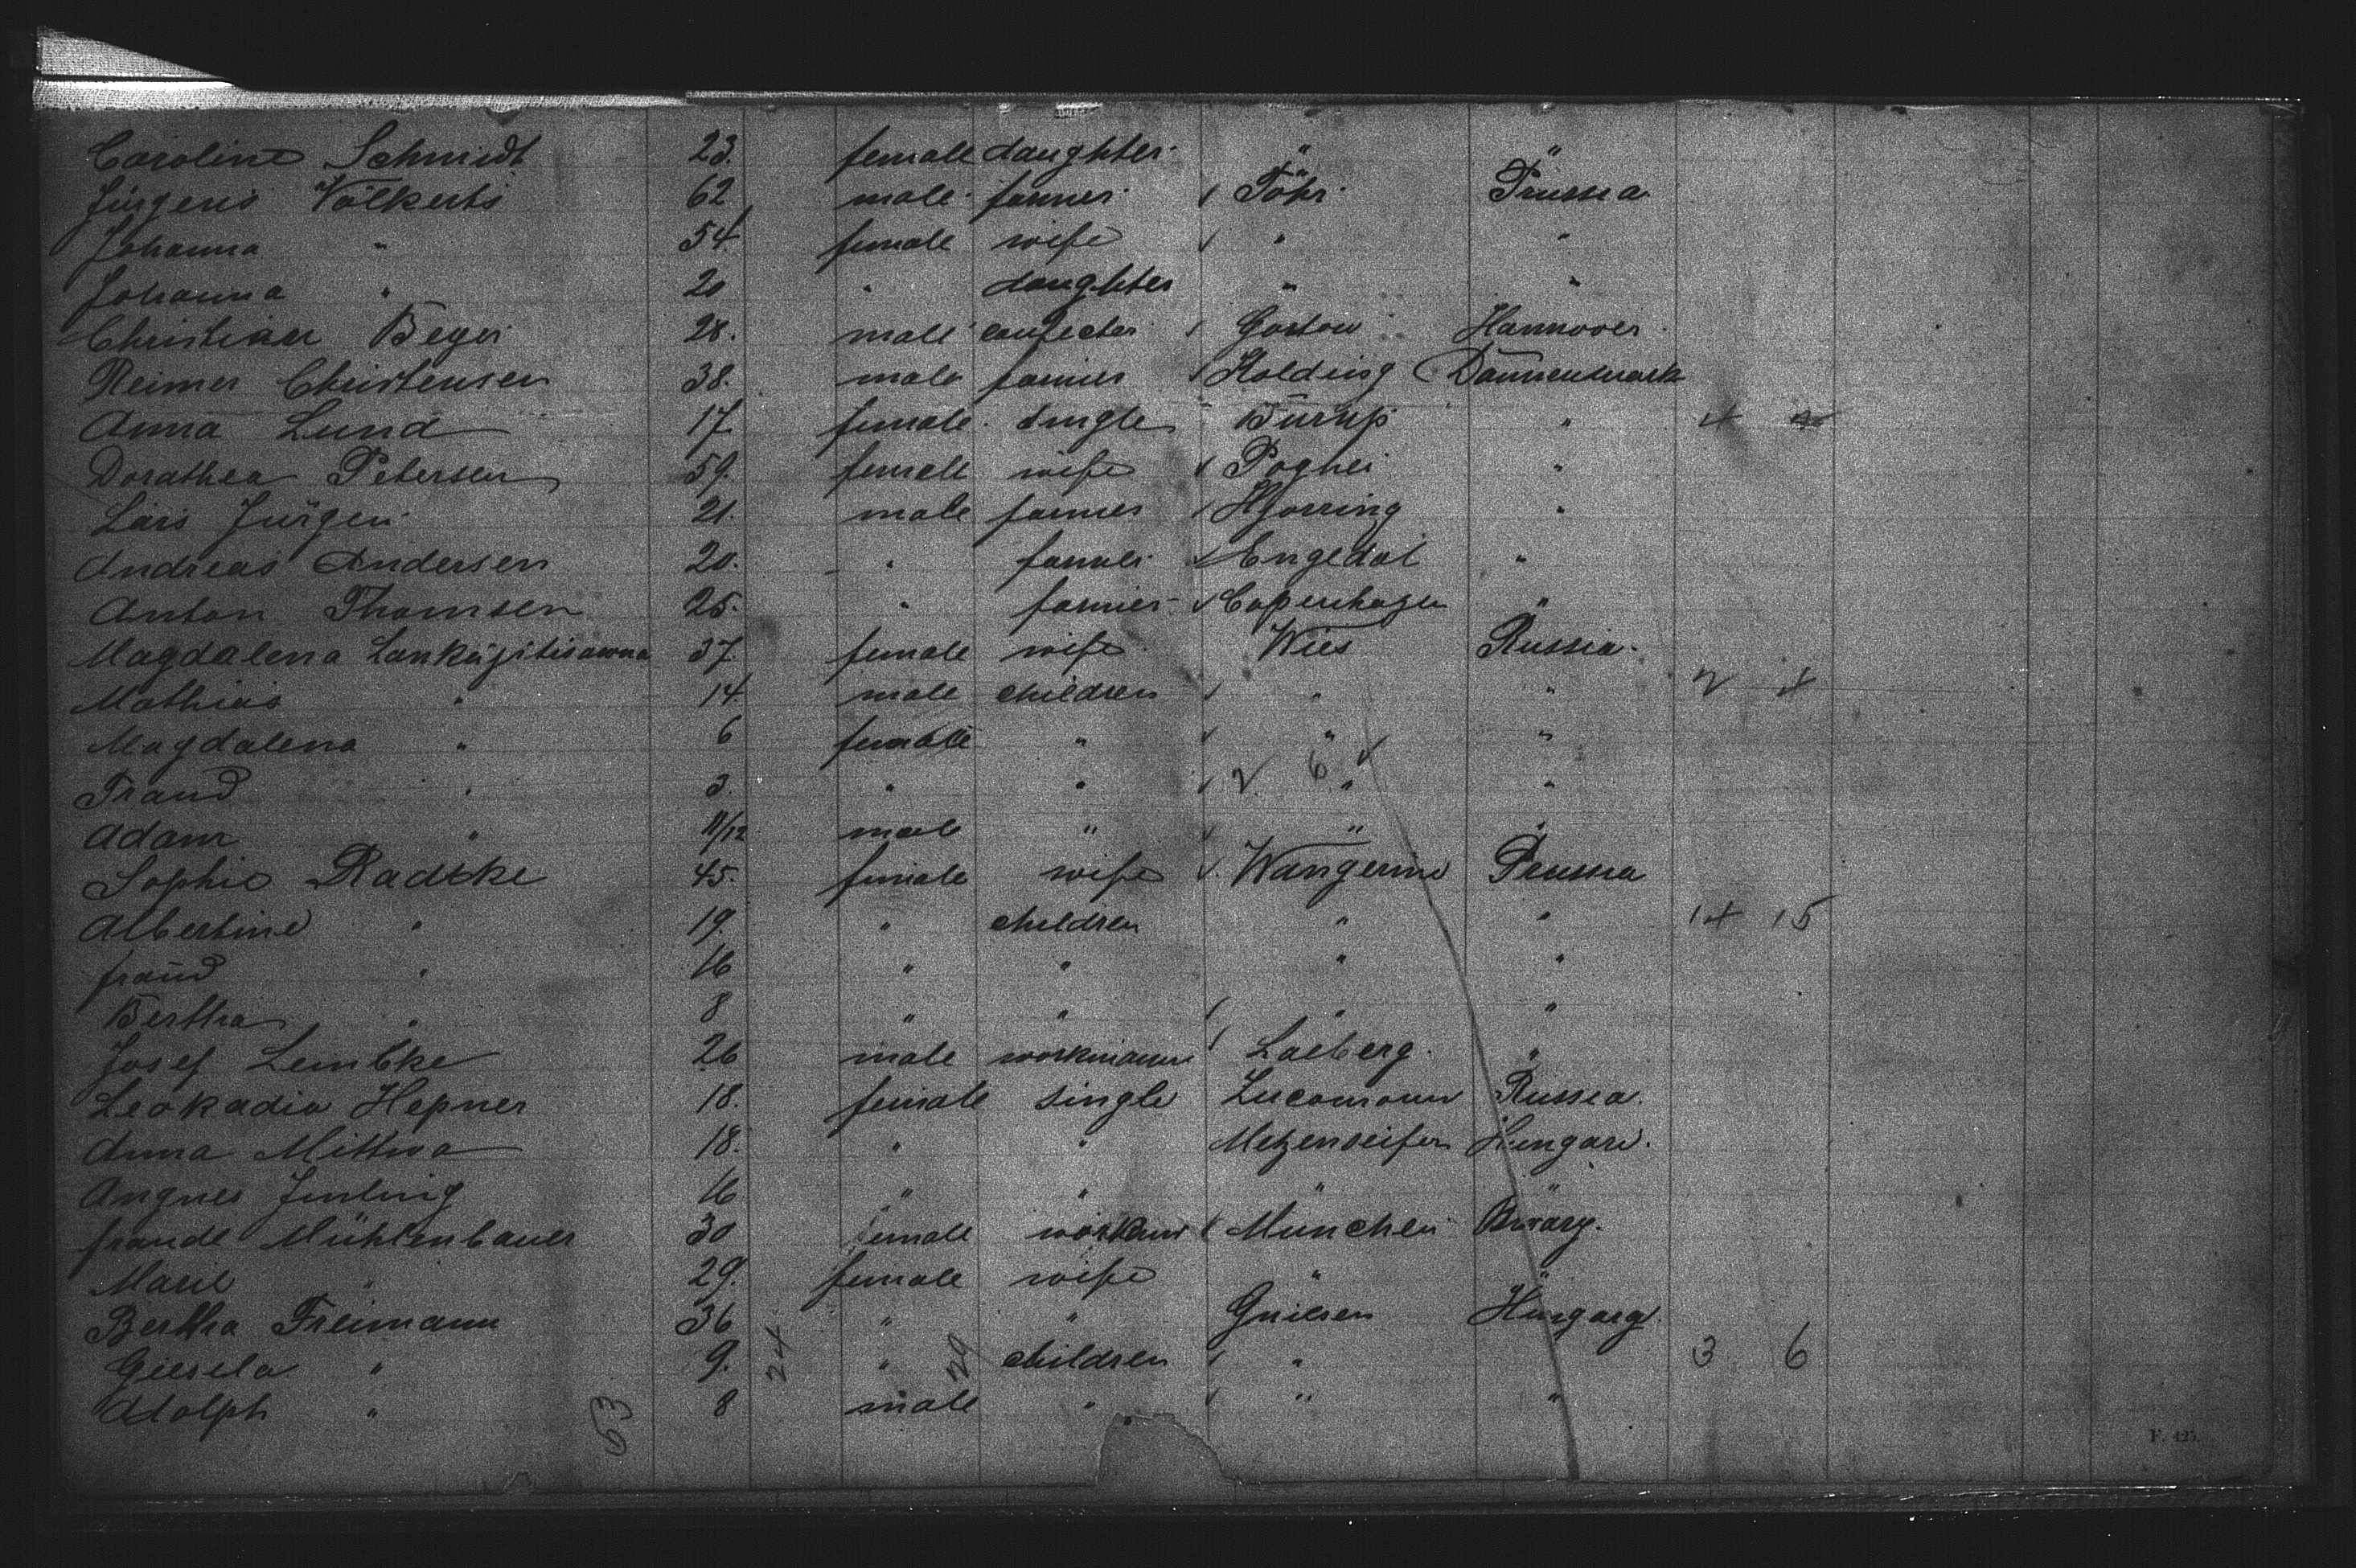 Caroline Schmidt 23. female daughter " "
Jürgens Völkerts 62. male farmer Föhr Prussia
Johanna " 54. female wife " "
Johanna " 20 " daughter " "
Christian Beyer 28. male Gartow Hannover
Reimer Christensen 38. male farmer Kolding Dännemark
Anna Lund 17 female single Bürup " 4
Dorathea Petersen 59. female wife "
Lars Jürgen 21. male farmer Hjorring "
Andreas Andersen 20. " farmer Engedal "
Anton Thomsen 25. " farmer Copenhagen "
Magdalena 37 female wife Wies Russia.
Mathias " 14. male children " " 2 4
Magdalena " 6 female " " "
Franz " 3. " " 2 6 " "
Adam " 11/12 male " " "
Sophie Radtke 45. female wife Wangerin Prussia
Albertine " 19. " children " " 14 15
" 16 " " " "
Bertha " 8 " " " "
Josef Lembke 26 male workmann "
Leokadia Hepner 18. female single Russia.
Anna Mittwa 18. " " Metzenseifen Hungari.
Angnes 16 " " " "
Mühlenbauer 30 female München
Marie " 29. female wife " "
Bertha Freimann 36 " " Hungary.
Giesela " 9. 24 " 29 children " 3 6
Adolph " 63 8 male " " "
F. 425.